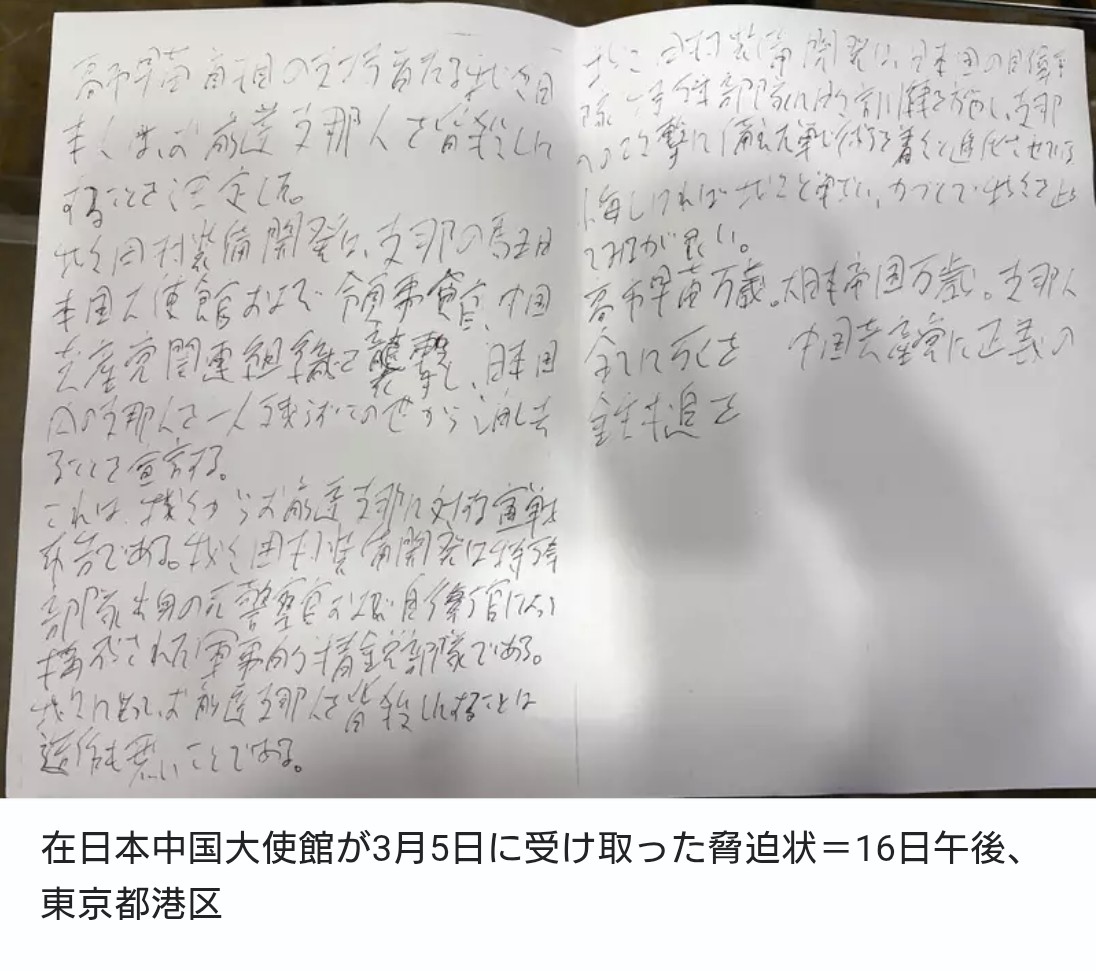 高市早苗首相の支持者たる我々日
本人は、お前達支那人を皆殺しに
することを決定した。
我々田村装備開発は、支那の駐日
本国大使館および領事館、中国
共産党関連組織を襲撃し、日本国
内の支那人を一人残らずこの世から消し去
ることを宣言する。
これは、我々からお前達支那に対する宣戦
布告である。我々田村装備開発は特殊
部隊出身の元警察官および自衛官によって
構成された軍事的精鋭部隊である。
我々に とって、お前達支那人を皆殺しにすることは
造作も無いことである。
我々田村装備開発は、日本国の自衛隊
特殊部隊に 訓練を施し、支那
への攻撃に備えた戦術を着々と進化させている
悔しければ我々と戦い、かつて 我々を
てみるが良い。
高市早苗万歳。大日本帝国万歳。支那人
全てに死を 中国共産党に正義の
鉄槌を
在日本中国大使館が3月5日に受け取った脅迫状＝16日午後、
東京都港区